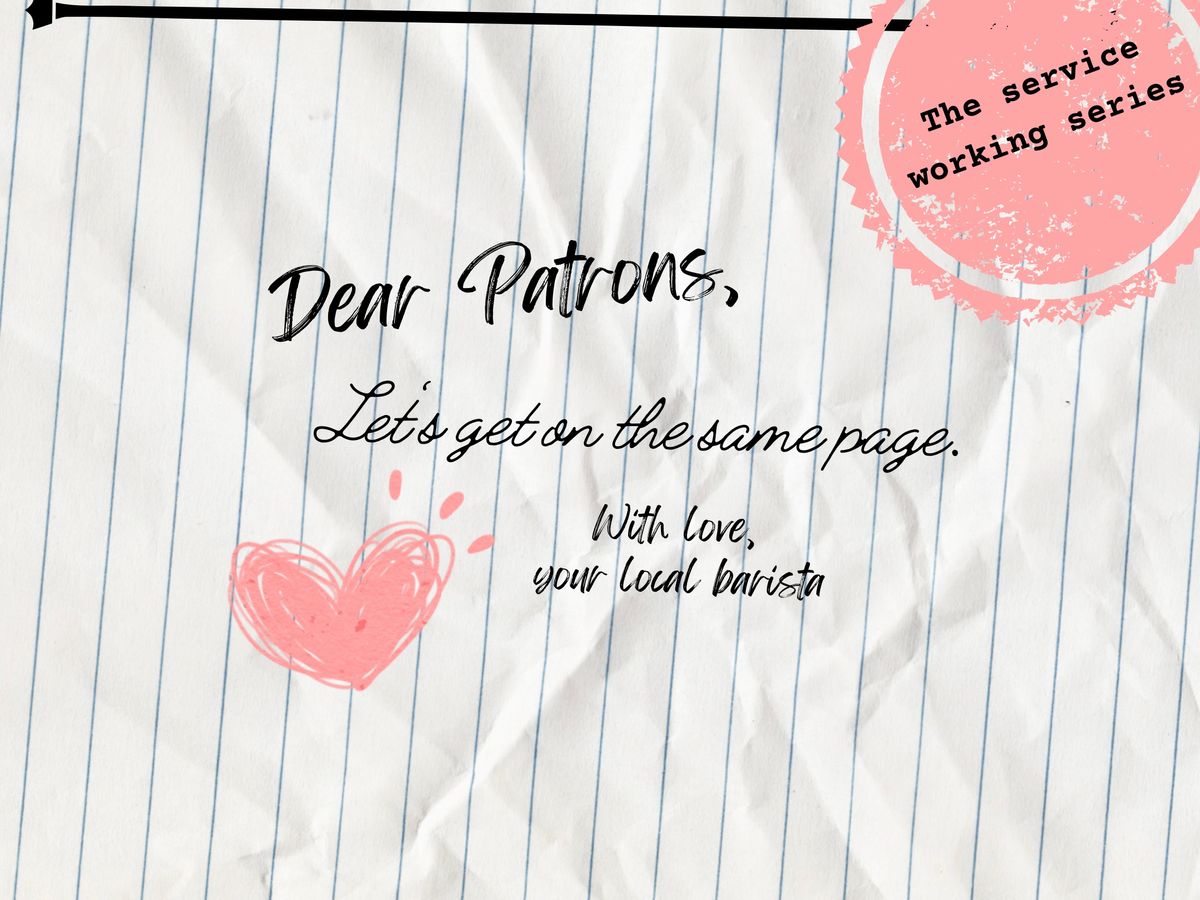 The service
working series
Dear Patrons,
Let's get on the same page.
With love,
your local barista